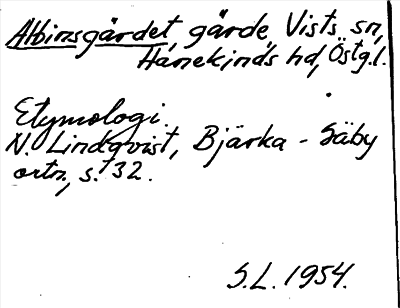 Albinsgärdet, gärde, Vists sn,
Hanekinds hd, Östg.l.
Etymologi.
N. Lindqvist, Bjärka - Säby
ortn., s. 32.
S.L. 1954.